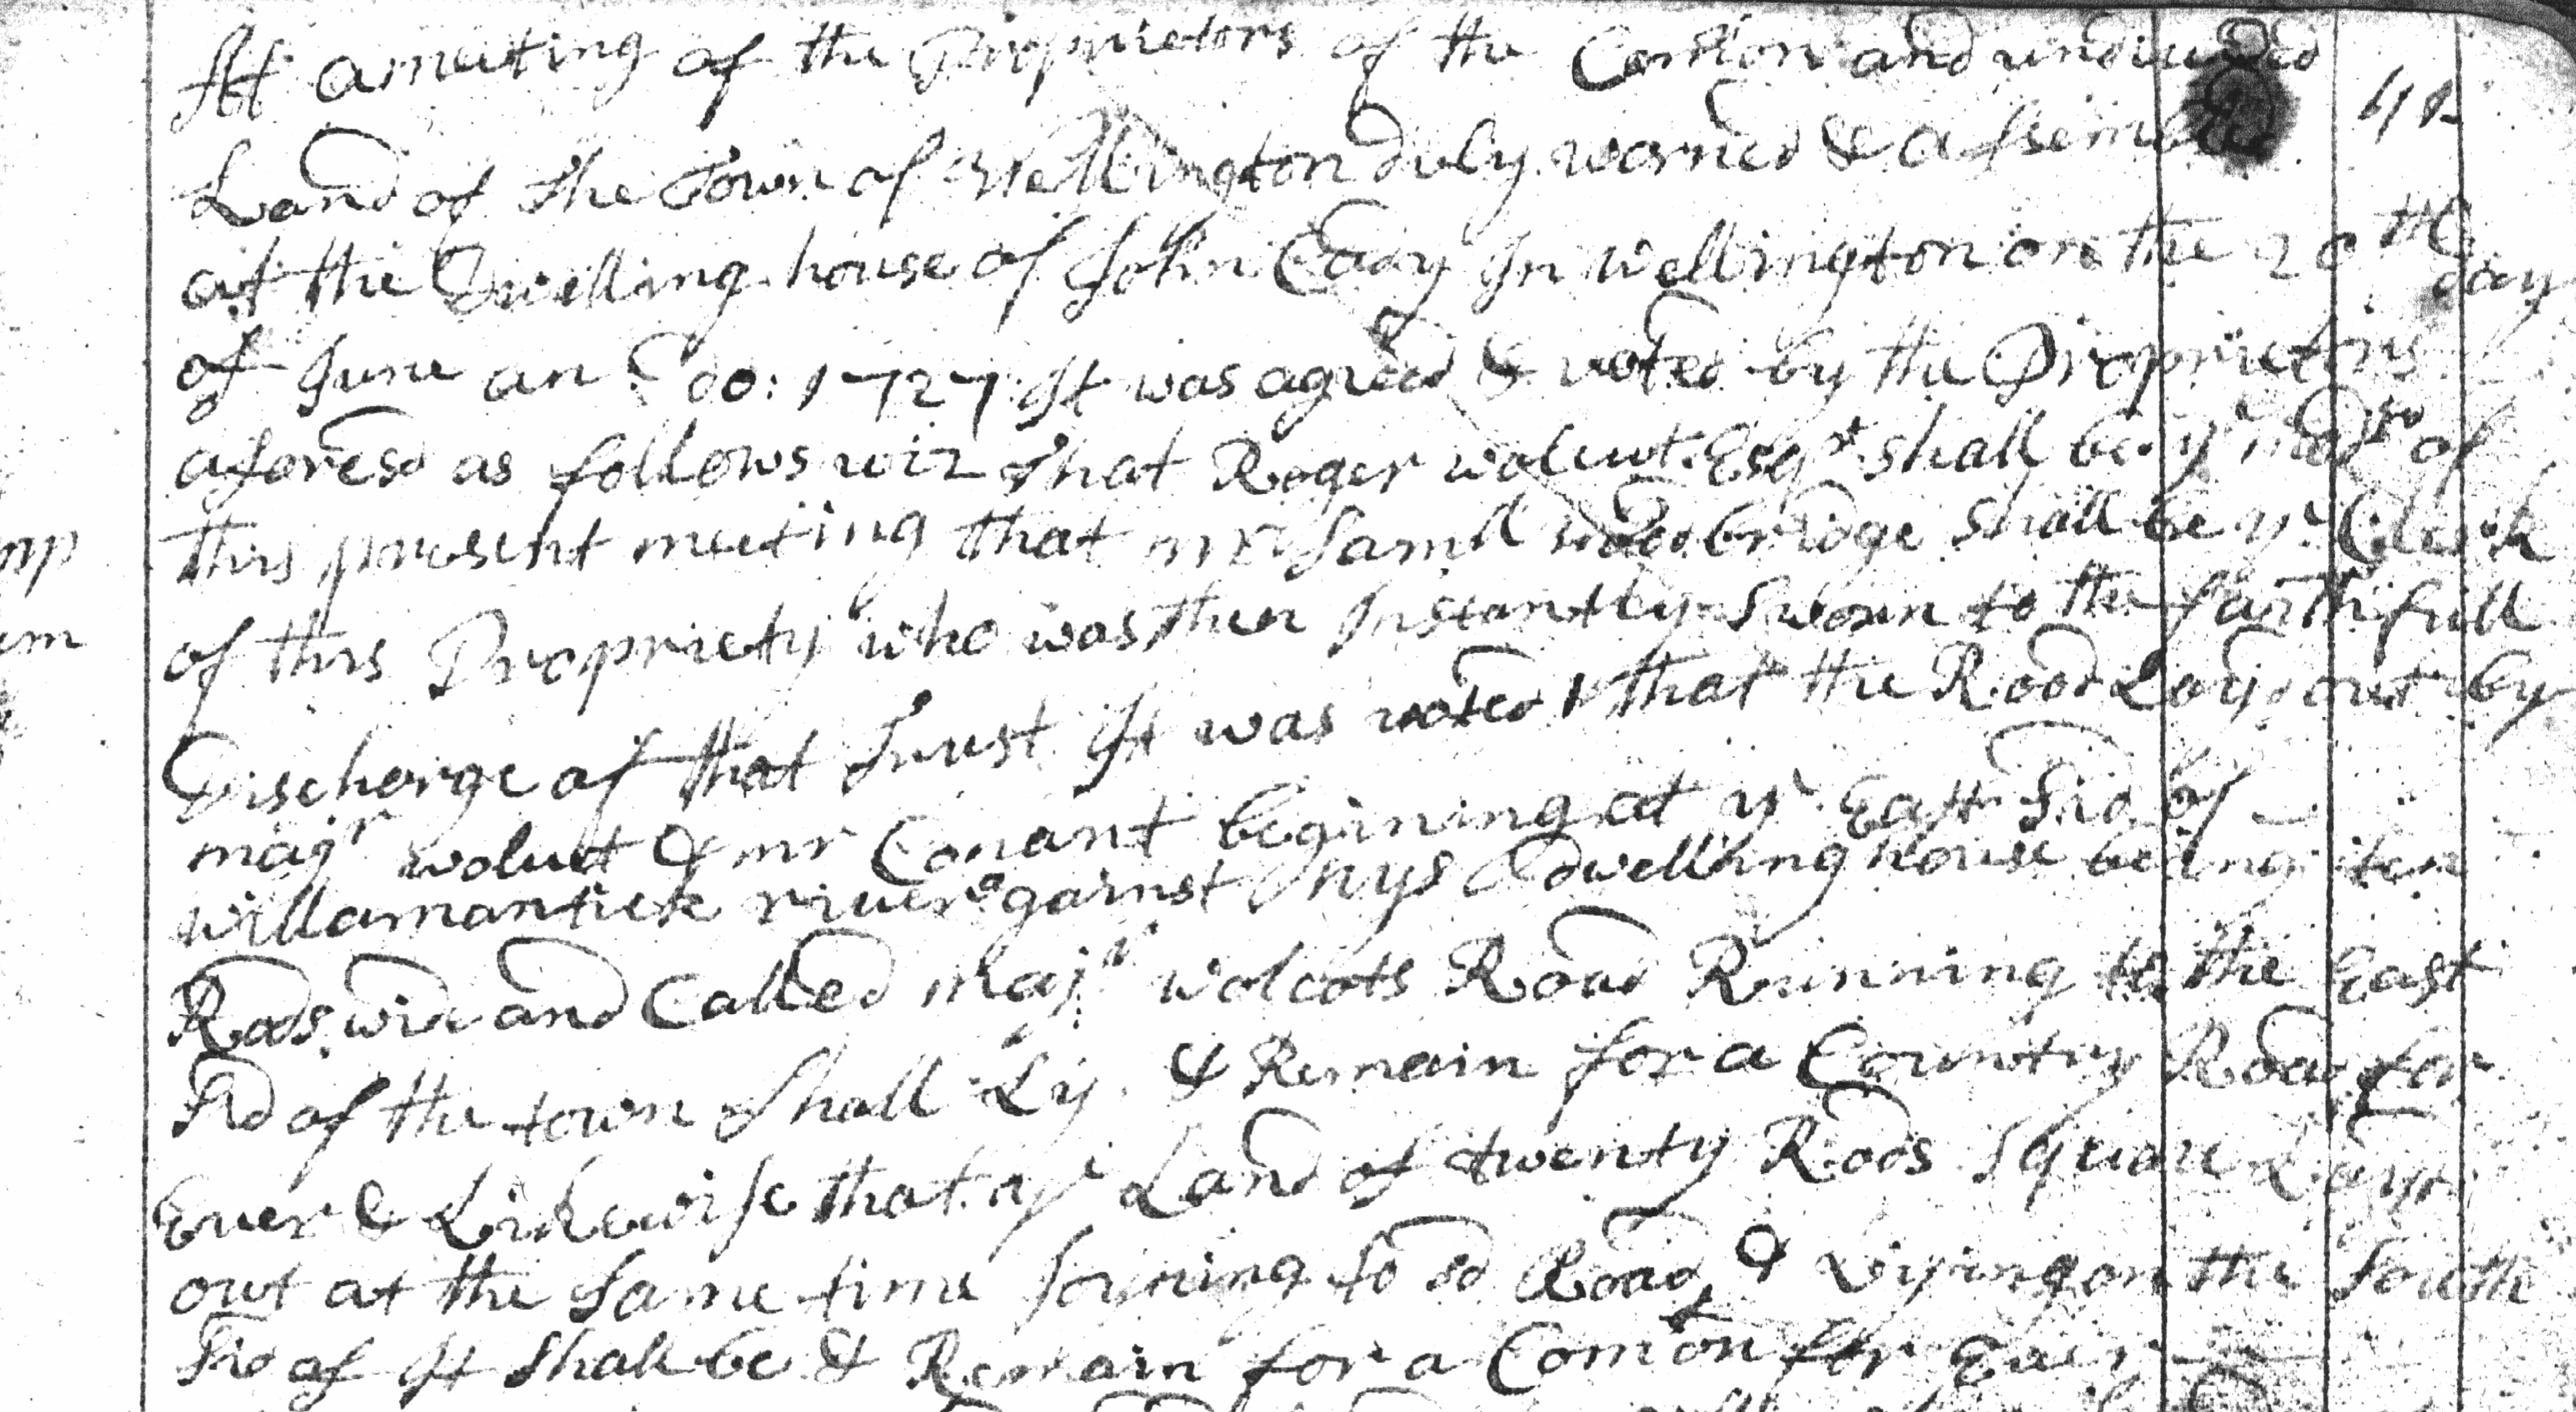 At a meeting of the Proprietors of the Comon and undivided
41
Land of the Town of Wellington duly warned & assembled
at the Dwelling house of John Eady In Wellington on the 20th day
of June an Do: 1727 It was agreed & voted by the Proprietors
aforesd as follows viz That Roger wolcut Esqr shall be ye modr of
this present meeting that mr Samll wodbridge Shall be ye Clerk
of this Propriety who was then Instantly Sworn to the faithfull
Discharge of that Trust It was voted that the Rood Layd out by
majr wolcut & mr Conant begining at ye East Sid of
willamantick river against Nys dwelling house being ten
Rods wide and Called majr wolcots Road Running to the East
Sid of the town Shall Ly & Remain for a Country Road for
Ever & Likewise that ye Land of twenty Rods Square Layd
out at the Same time Joyning to sd Road & Lying on the South
Sid of It Shall be & Remain for a Comon for Ever